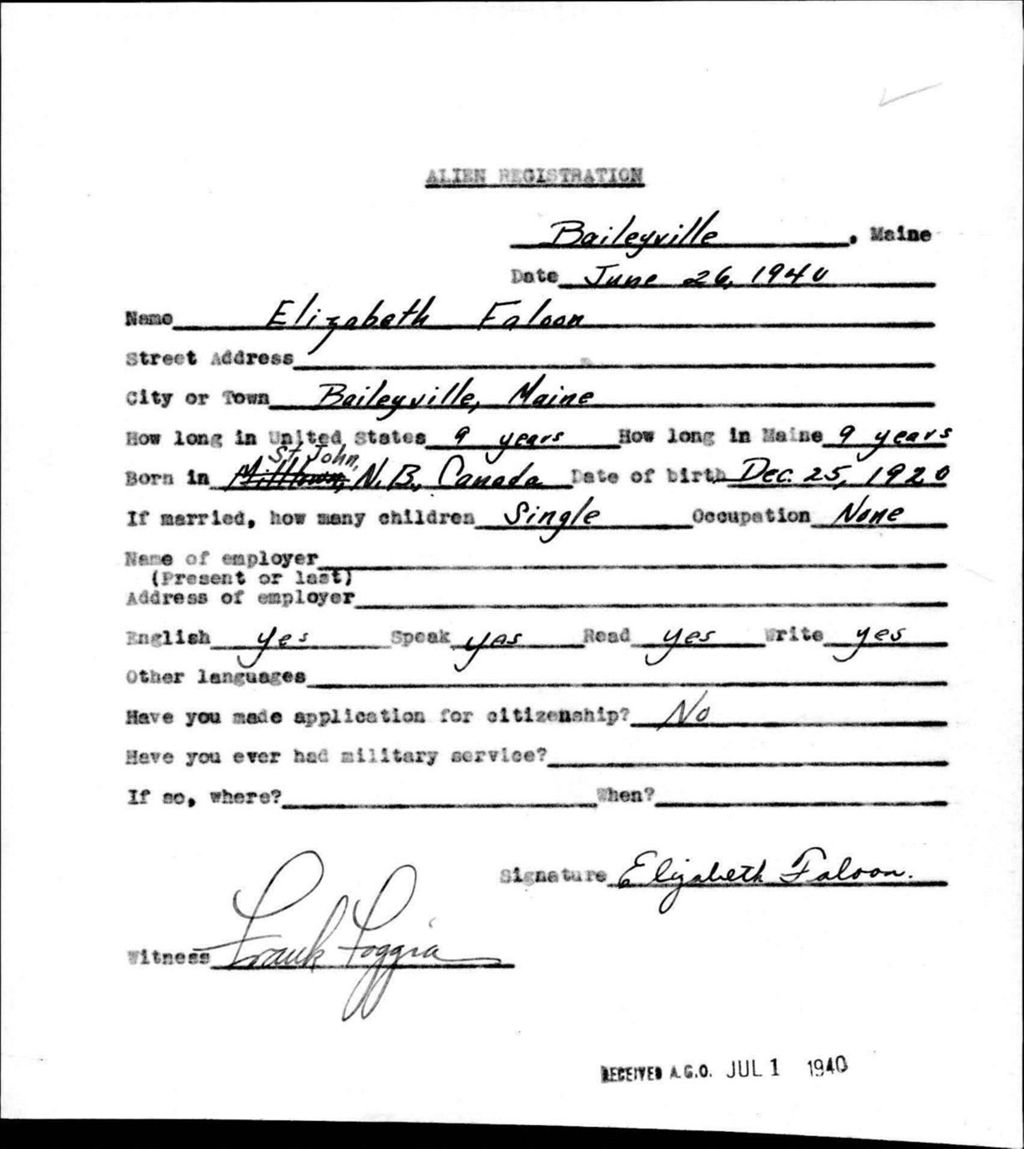 ALIEN REGISTRATION
Baileyville, Maine
Date June 26, 1940
Name Elizabeth Faloon
Street Address
City or Town Baileyville, Maine
How long in United States 9 years How long in Maine 9 years
St. John,
Born in Milltown, N.B., Canada Date of birth Dec. 25, 1920
If married, how many children Single Occupation None
Name of employer
(Present or last)
Address of employer
English yes Speak yes Read yes Write yes
Other languages
Have you made application for citizenship? No
Have you ever had military service?
If so, where? When?
Signature Elizabeth Faloon.
Witness Frank Foggia
RECEIVED A.G.O. JUL 1 1940